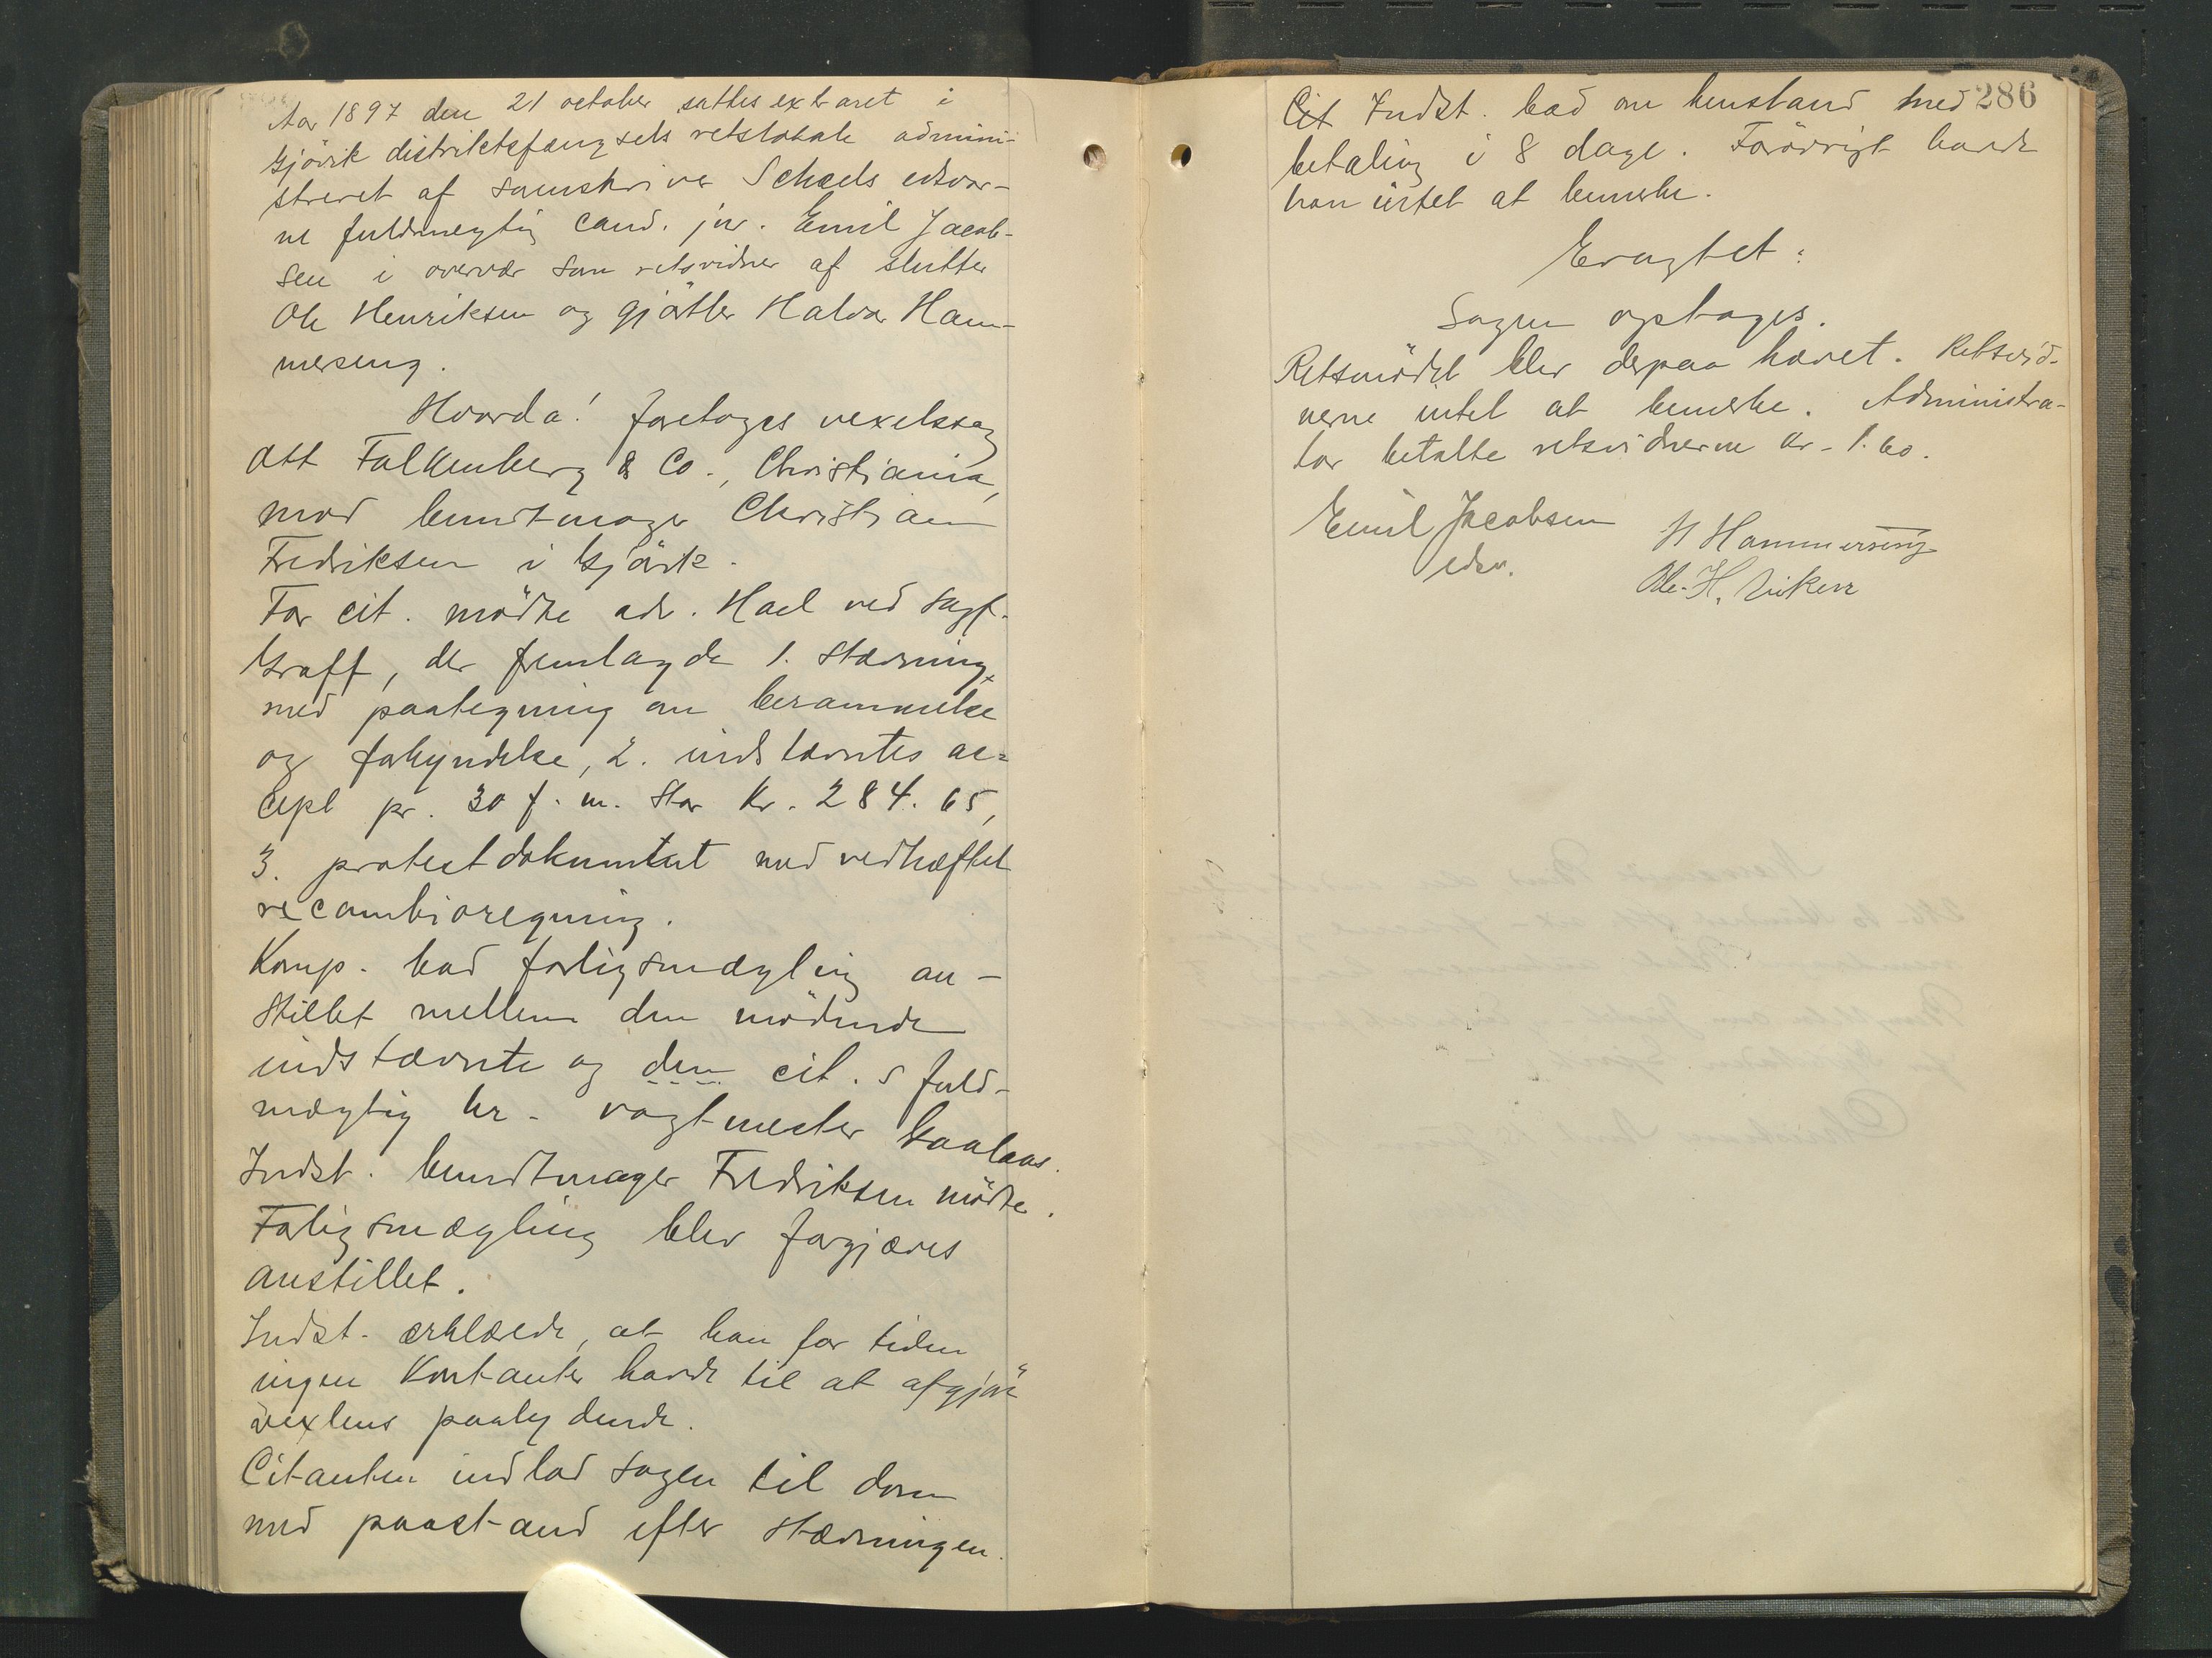 Aar 1897 den 21 october sattes extraret i
Gjövik distriktsfængsels retslokale admini-
streret af sorenskriver Scheels edsvor-
ne fuldmegtig cand. jur. Emil Jacob-
sen i overvær som retsvidner af slutter
Ole Henriksen og gjörtler Halvor Ham-
merseng.
Hvorda! foretoges vexelssag
Ott Falkenberg & Co., Christiania,
mod bundtmager Christian
Fredriksen i Gjövik.
For cit. mödte adv. Hoel ved sagf.
Graff, der fremlagde 1. stævning
med paategning om berammelse
og forkyndelse, 2. indstævntes ac=
cept pr. 30 f. m. stor Kr. 284.65,
3. protestdokumentet med vedhæftet
recambioregning.
Komp. bad forligsmægling an-
stillet mellem den mödende
indstævnte og den cit.s fuld-
mægtig hr. vagtmester Gaalaas.
Indst. bundtmager Fredriksen mödte.
Forligsmægling blev forgjæves
anstillet.
Indst. erklærede, at han for tiden
ingen Kontanter havde til at afgjöre
vexlens paalydende.
Citanten indlod sagen til dom
med paastand efter stævningen.
286
Cit Indst. bad om henstand med
betaling i 8 dage. Forövrigt havde
han intet at bemerke.
Eragtet:
Sagen optages.
Retsmödet blev derpaa hævet. Retsvid-
nerne intet at bemerke. Administra-
tor betalte retsvidnerne Kr. 1.60.
Emil Jacobsen
edsv.
H Hammerseng
Ole. H. Viken